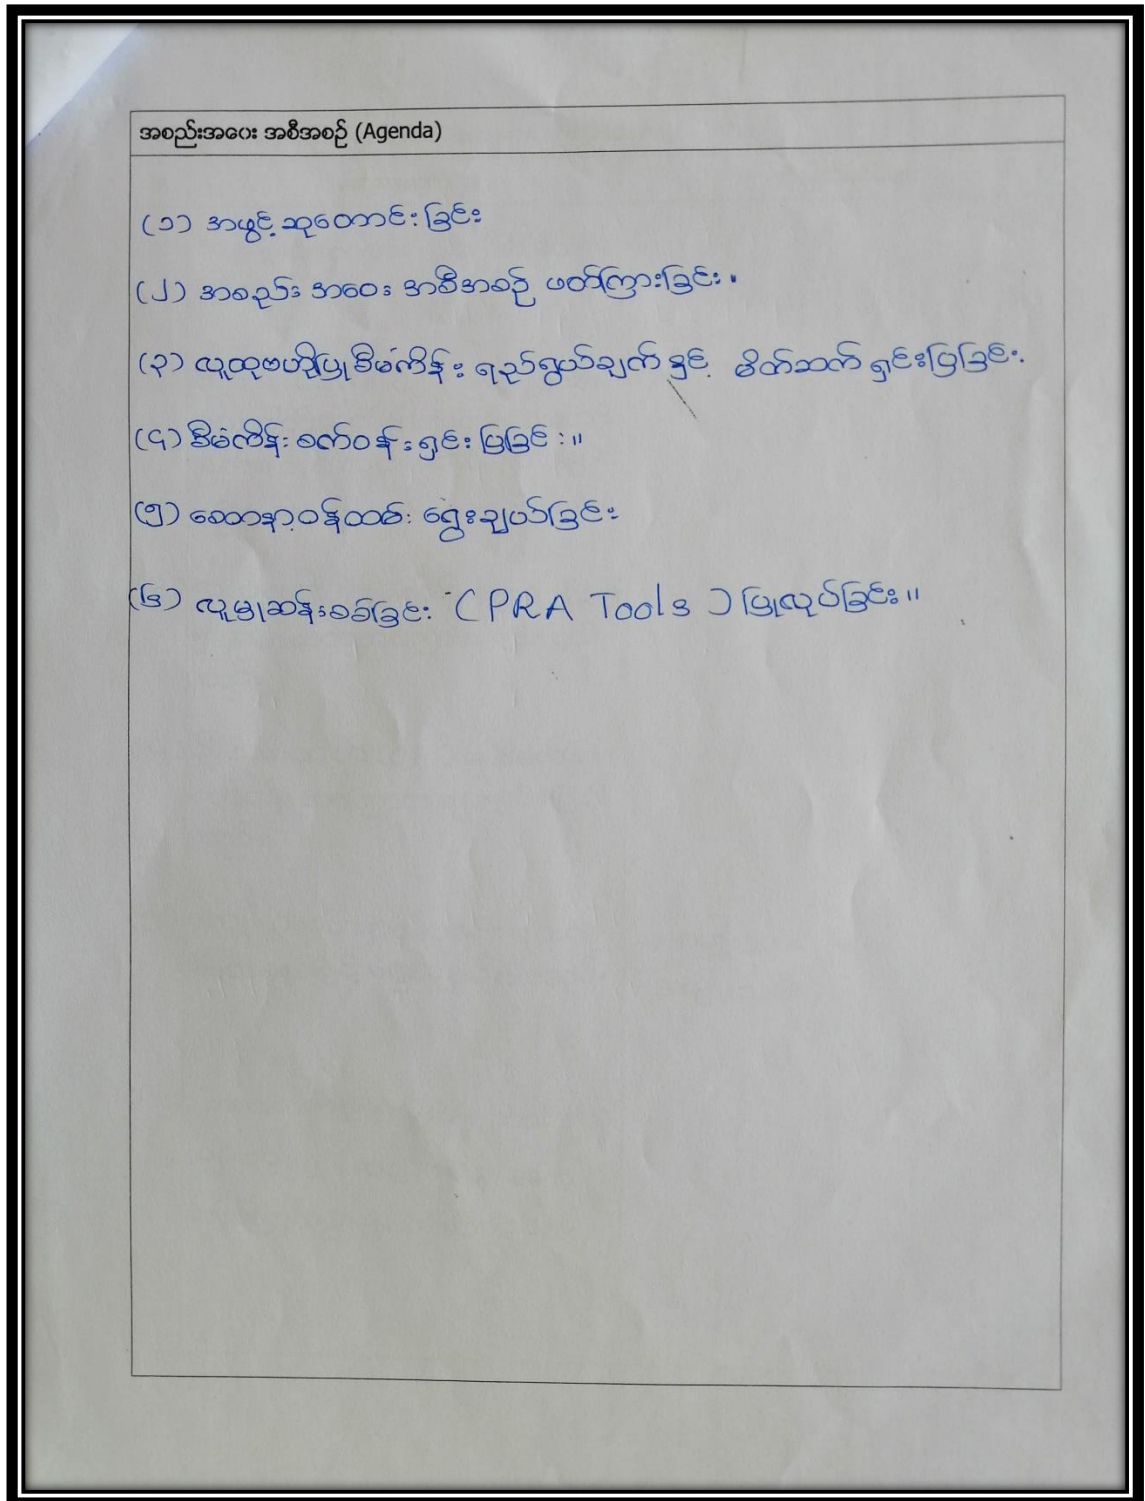 အစည်းအဝေး အစီအစဉ် (Agenda)
(၁) အဖွင့် ဆုတောင်းခြင်း
(၂) အစည်း အဝေး အစီအစဉ် ဖတ်ကြားခြင်း။
(၃) လူထုဗဟိုပြုစီမံကိန်း ရည်ရွယ်ချက် နှင့် မိတ်ဆက် ရှင်းပြခြင်း.
(၄) စီမံကိန်း စက်ဝန်း ရှင်း ပြခြင်း ။
(၅) စေတနာ့ဝန်ထမ်း ရွေးချယ်ခြင်း
(၆) လူမှုဆန်းစစ်ခြင်း (PRA Tools) ပြုလုပ်ခြင်း။